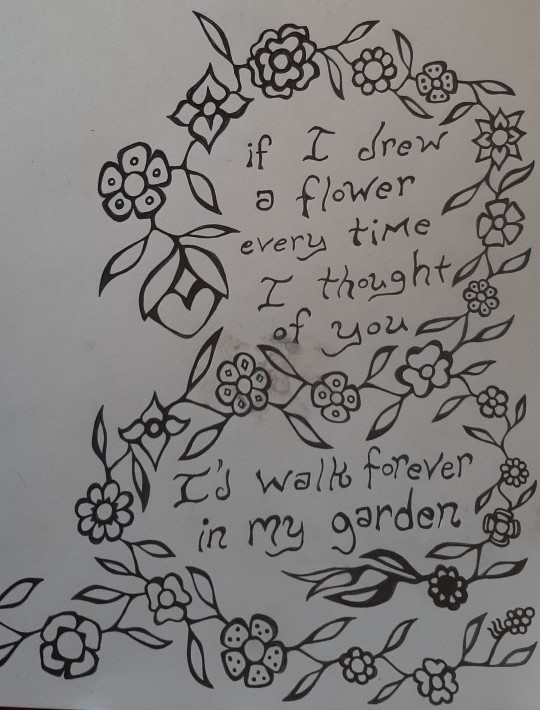 if I drew
a flower
every time
I thought
of you
I'd walk forever
in my garden